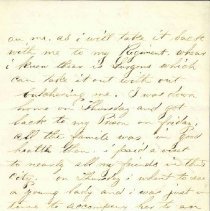 on me, as i will take it back
with me to my Regiment. whear
i know thear is Surgons which
can take it out with out
butchering me. I was down
home on Thursday and got
back to my Prison on friday,
all the family was in good
health then. i paid a visit
to nearly all my friends in this
city. on Thursday i went to see
a young lady and i was just in
time to accompany her to an